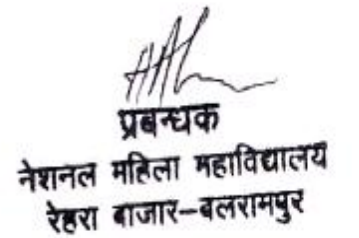 प्रबन्धक
नेशनल महिला महाविद्यालय
रेहरा बाजार–बलरामपुर